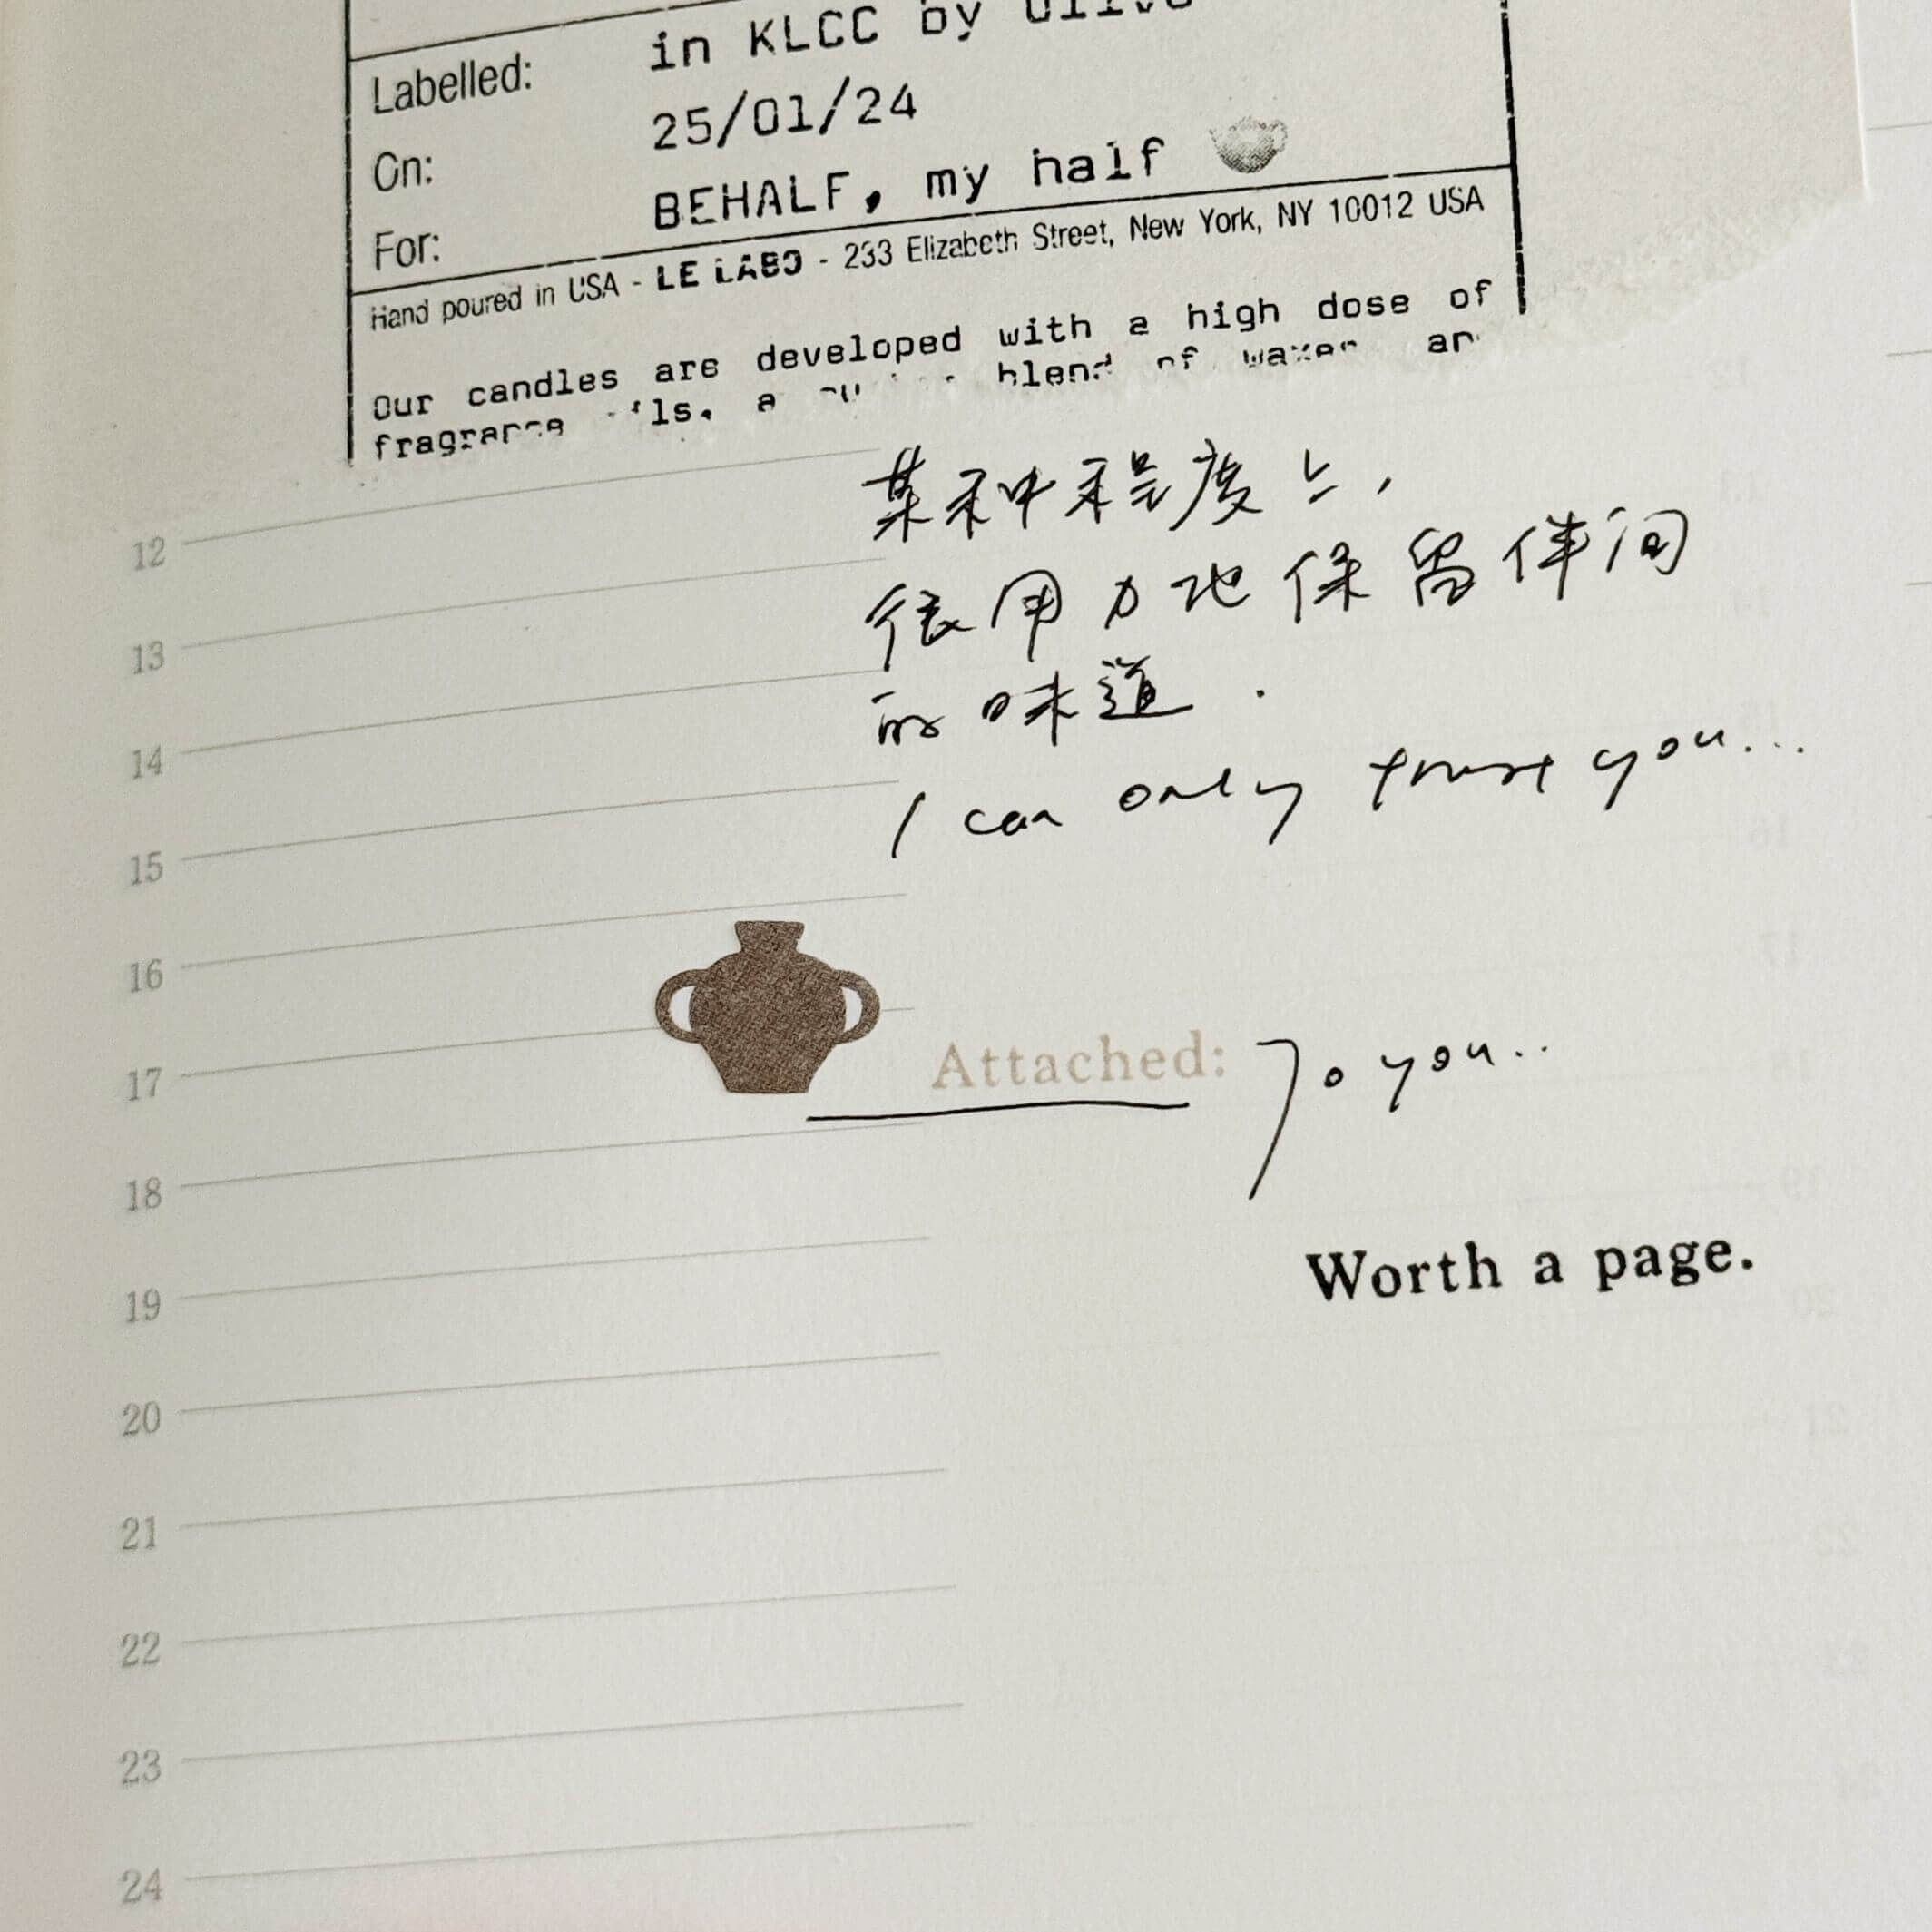 Labelled: in KLCC by
On: 25/01/24
For: BEHALF, my half
Hand poured in USA - LE LABO - 233 Elizabeth Street, New York, NY 10012 USA
Our candles are developed with a high dose of
blend of
某种程度上,
很用力地保留伴间
的味道.
I can only trust you...
Attached: To you..
Worth a page.
12
13
14
15
16
17
18
19
20
21
22
23
24